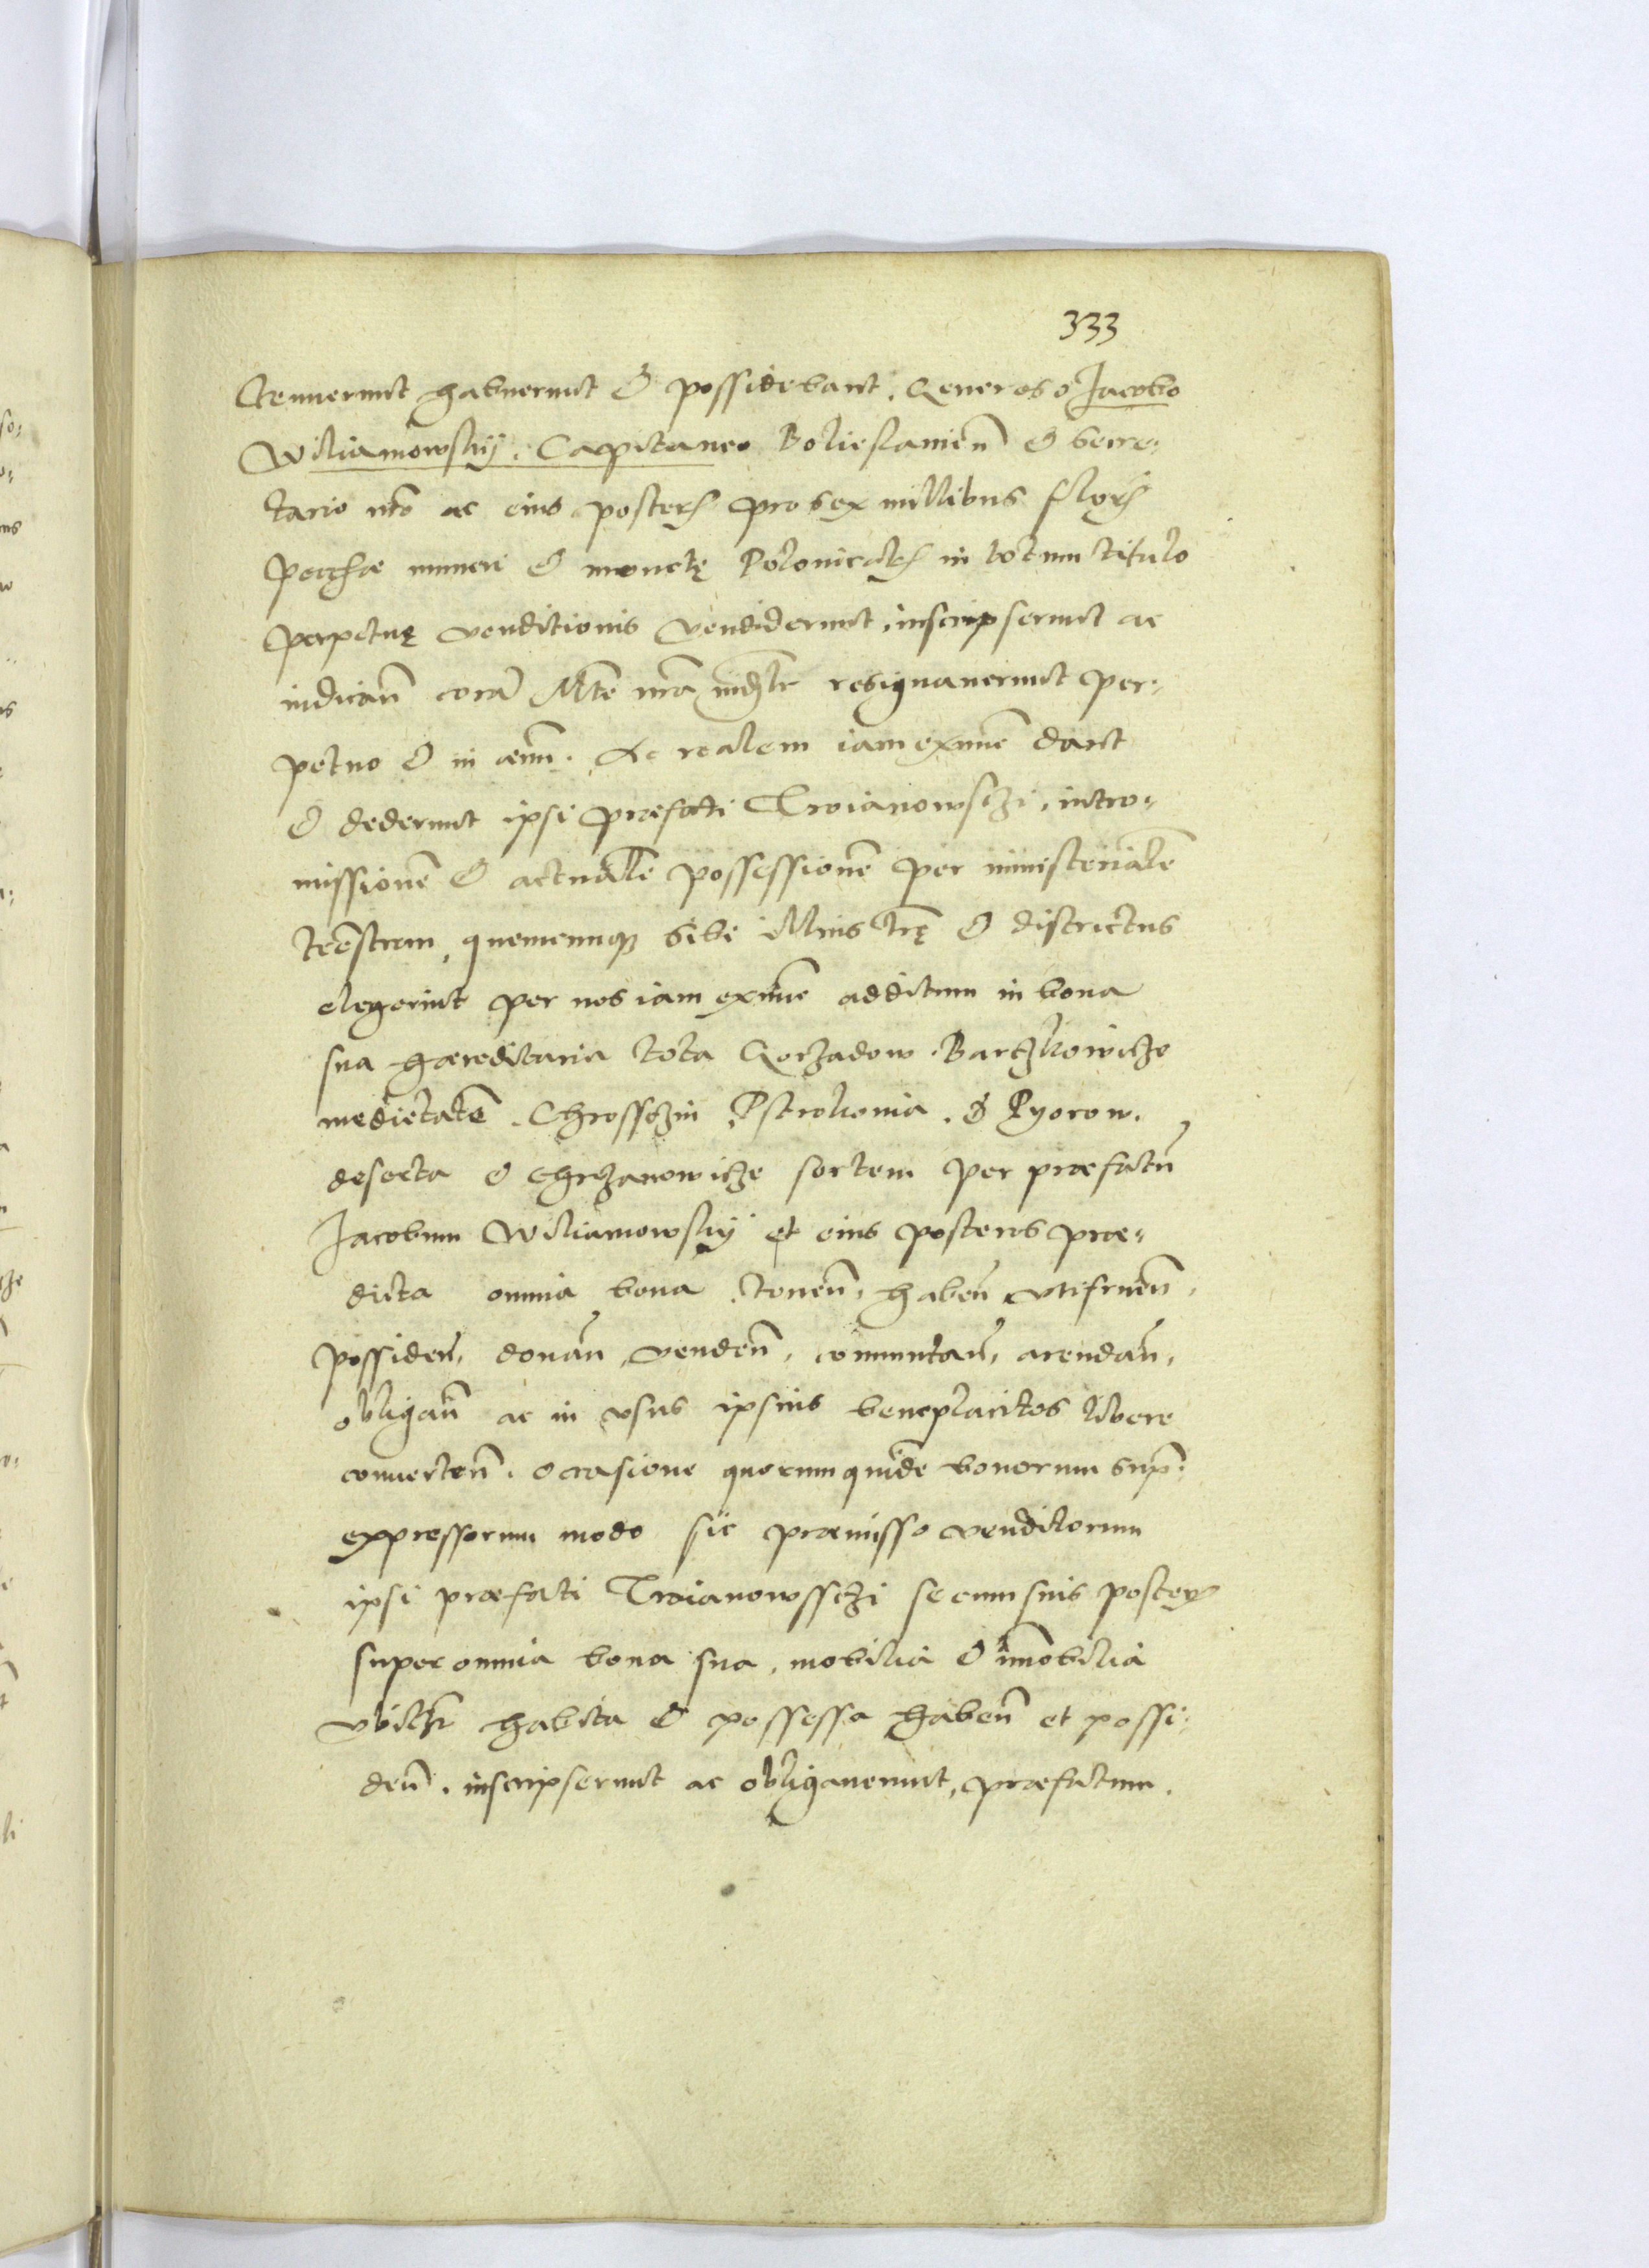 333
tenuerunt habuerunt & possidebant. Generoso Jacobo
Wiliamowsky. Capitaneo Bolieslauien̄ & Secre-
tario nr̄o ac eius poster̄ pro sex millibus flor̄
Pecuniæ numeri & monetę Polonical̄ in totum titulo
perpetuę venditionis vendiderunt, inscripserunt ac
iudicialr̄ corā Mte nr̄a resignauerunt per-
petuo & in æuū. Ac realem iam ex nunc dant
& dederunt ipsi præfati Troianowsczi, intro-
missionē & actualē possessionē per ministerialē
terrestrem, quemcunq̨ sibi illius trę & districtus
elegerint per nos iam ex nunc additum in bona
sua hæreditaria tota Gorzadow. Bartzkowicze
medietatē. Chrossczin Ostrolionia. & Pyorow.
deserta & Chrzanowicze sortem per præfatū
Jacobum Wiliamowsky et eius posteros præ-
dicta omnia bona tenen̄, haben̄ vtifruen̄,
possiden̄, donan̄, venden̄, comutan̄, arendan̄,
obligan̄ ac in vsus ipsius beneplacitos libere
conuerten̄. Occasione quorumquidē bonorum sup̄-
expressorum modo sic præmisso venditorum
ipsi præfati Troianowssczi se cum suis poster̄
super omnia bona sua, mobilia & im̄obilia
vbilt̄ habita & possessa haben̄ et possi-
den̄. inscripserunt ac obligauerunt, præfatum.